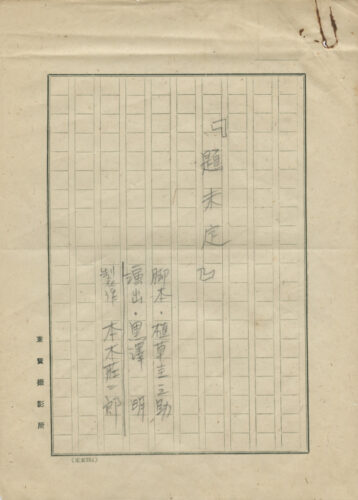 『題未定』
脚本・植草圭之助
演出・黒澤 明
製作・本木莊二郎
東寶撮影所